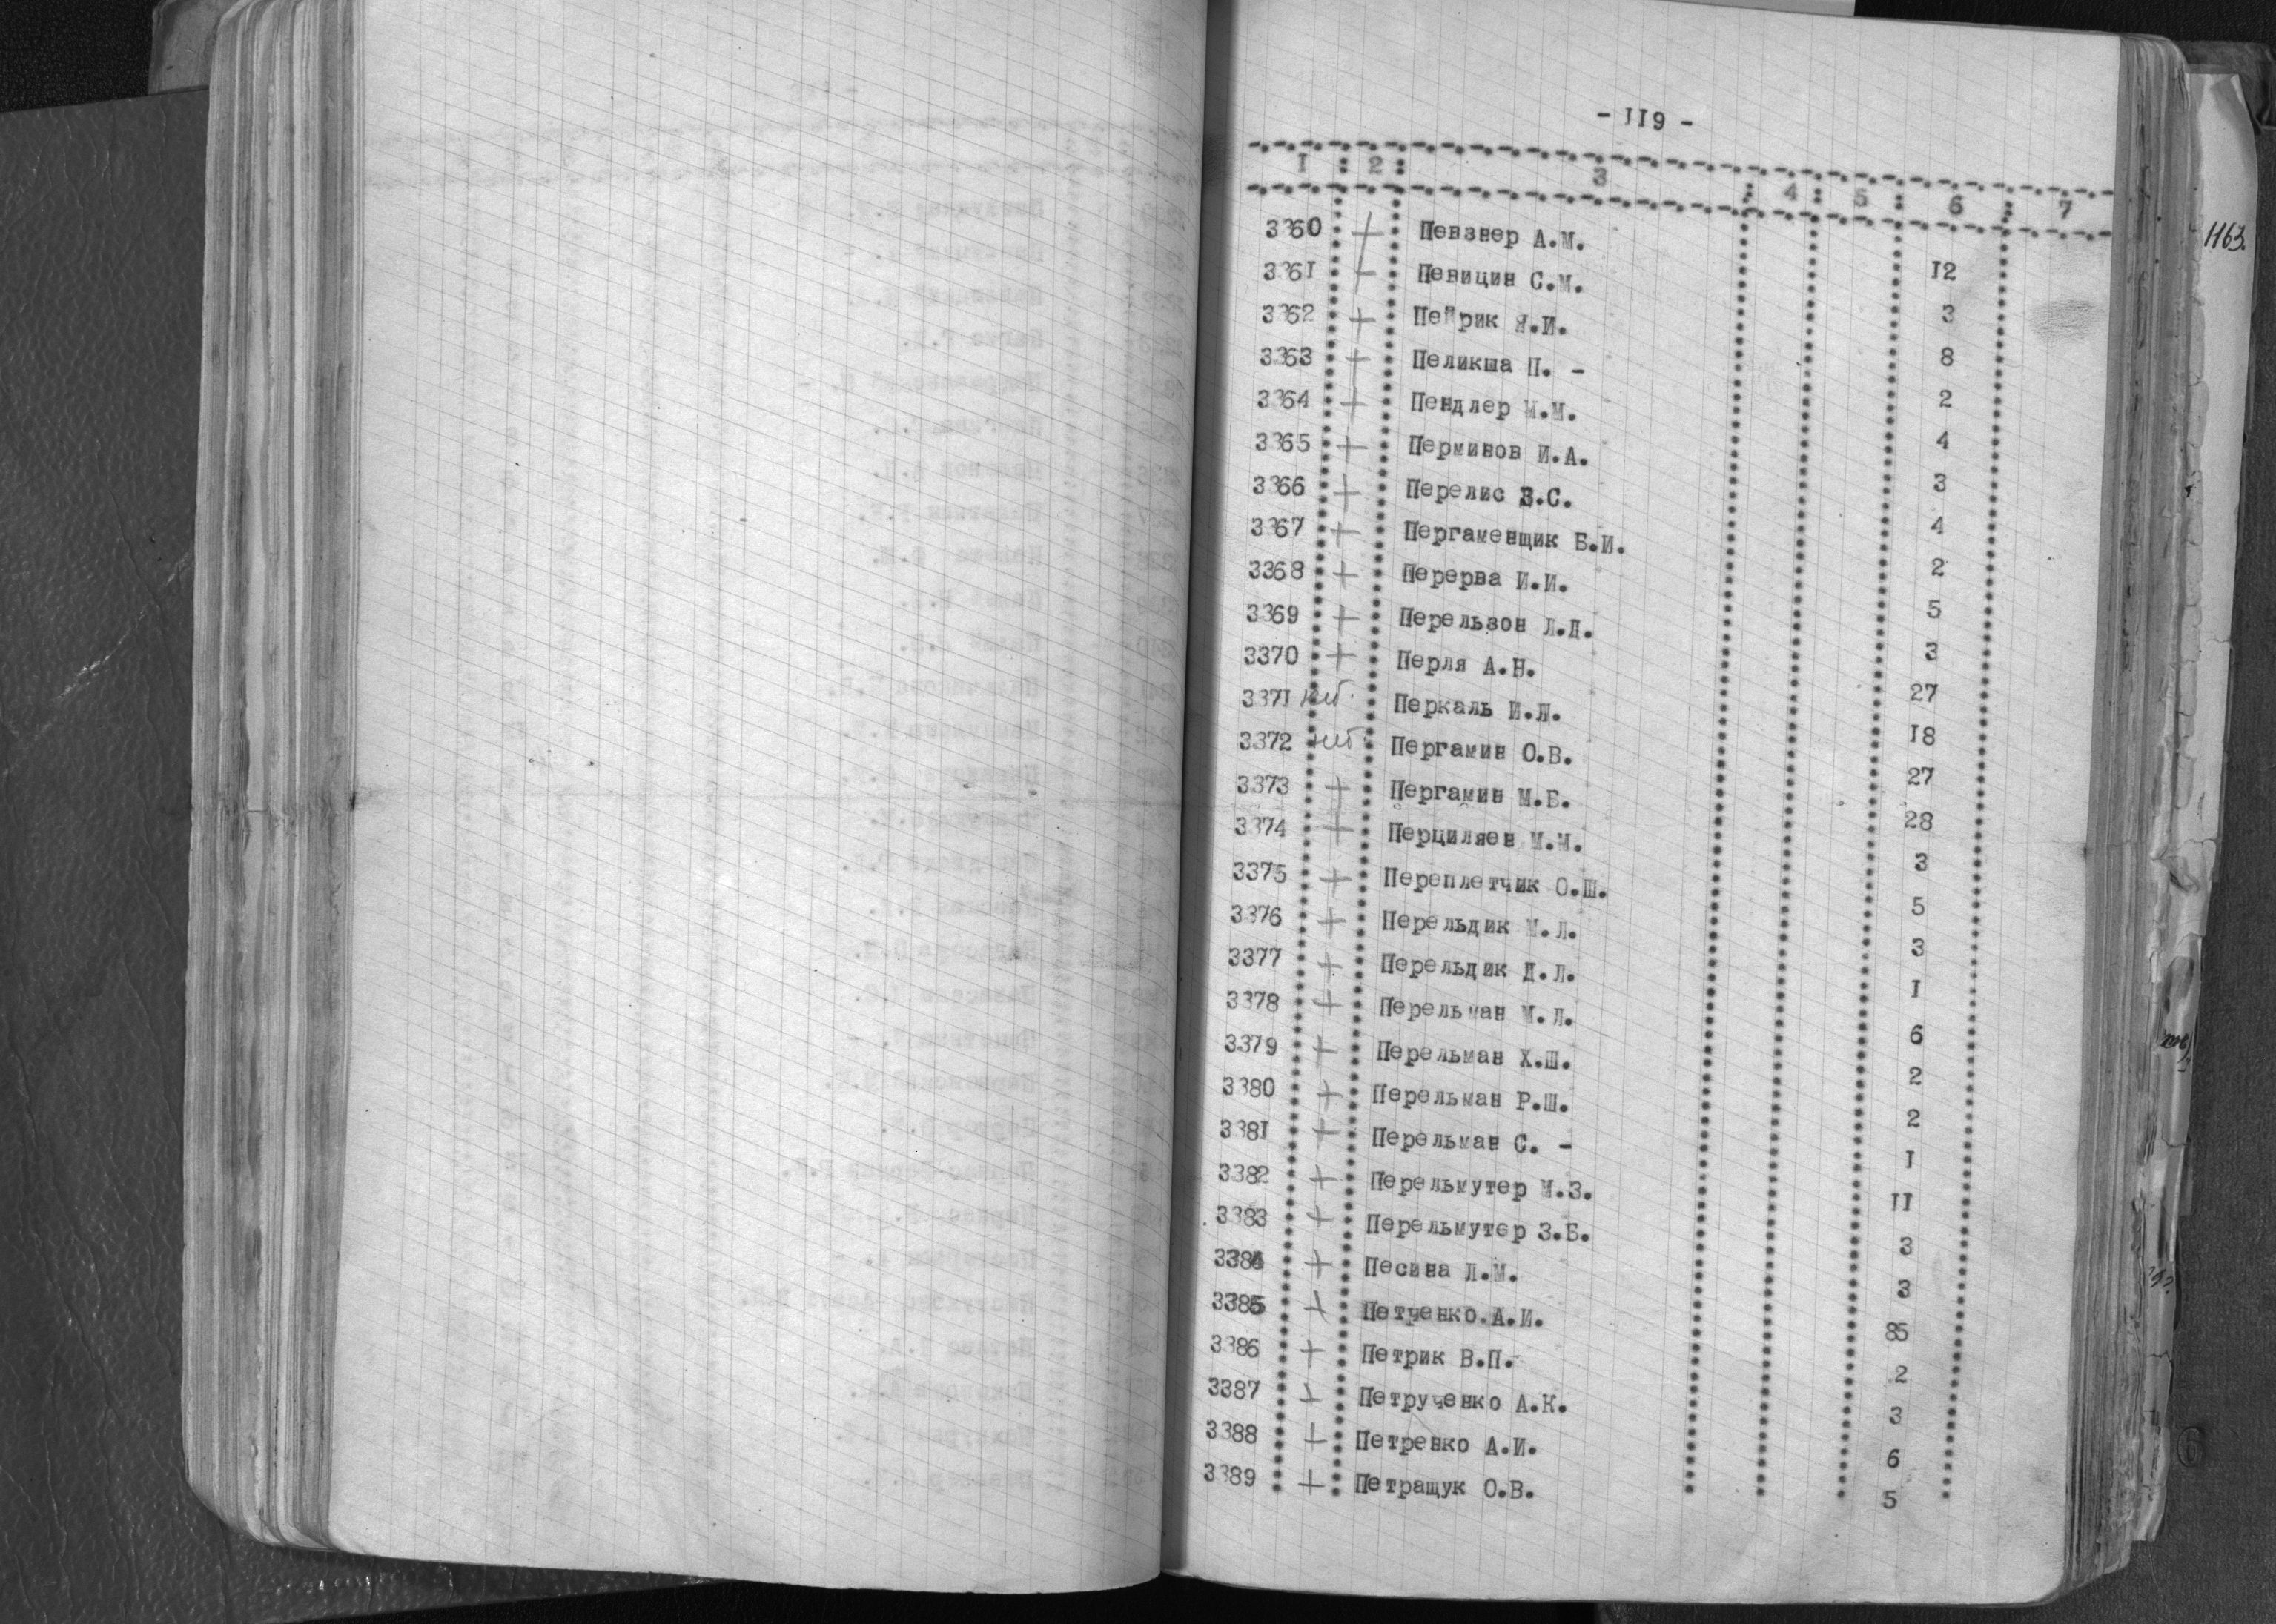 - 119 -
1 : 2 : 3 : 4 : 5 : 6 : 7
3360 + Певзнер А.М. 12
3361 - Певицин С.М. 3
3362 + Пейрик Я.И. 8
3363 + Пеликша П. - 2
3364 + Пендлер М.М. 4
3365 + Перминов И.А. 3
3366 + Перелис З.С. 4
3367 + Пергаменщик Б.И. 2
3368 + Перерва И.И. 5
3369 + Перельзон Л.Д. 3
3370 + Перля А.Н. 27
3371 нет. Перкаль И.Л. 18
3372 нет Пергамин О.В. 27
3373 + Пергамин М.Б. 28
3374 + Перциляев М.М. 3
3375 + Переплетчик О.Ш. 5
3376 + Перельдик М.Л. 3
3377 + Перельдик Д.Л. 1
3378 + Перельман М.Л. 6
3379 + Перельман Х.Ш. 2
3380 + Перельман Р.Ш. 2
3381 + Перельман С. - 1
3382 + Перельмутер М.З. 11
3383 + Перельмутер З.Б. 3
3384 + Песина Л.М. 3
3385 + Петченко А.И. 85
3386 + Петрик В.П. 2
3387 + Петрученко А.К. 3
3388 + Петренко А.И. 6
3389 + Петращук О.В. 5
1163.